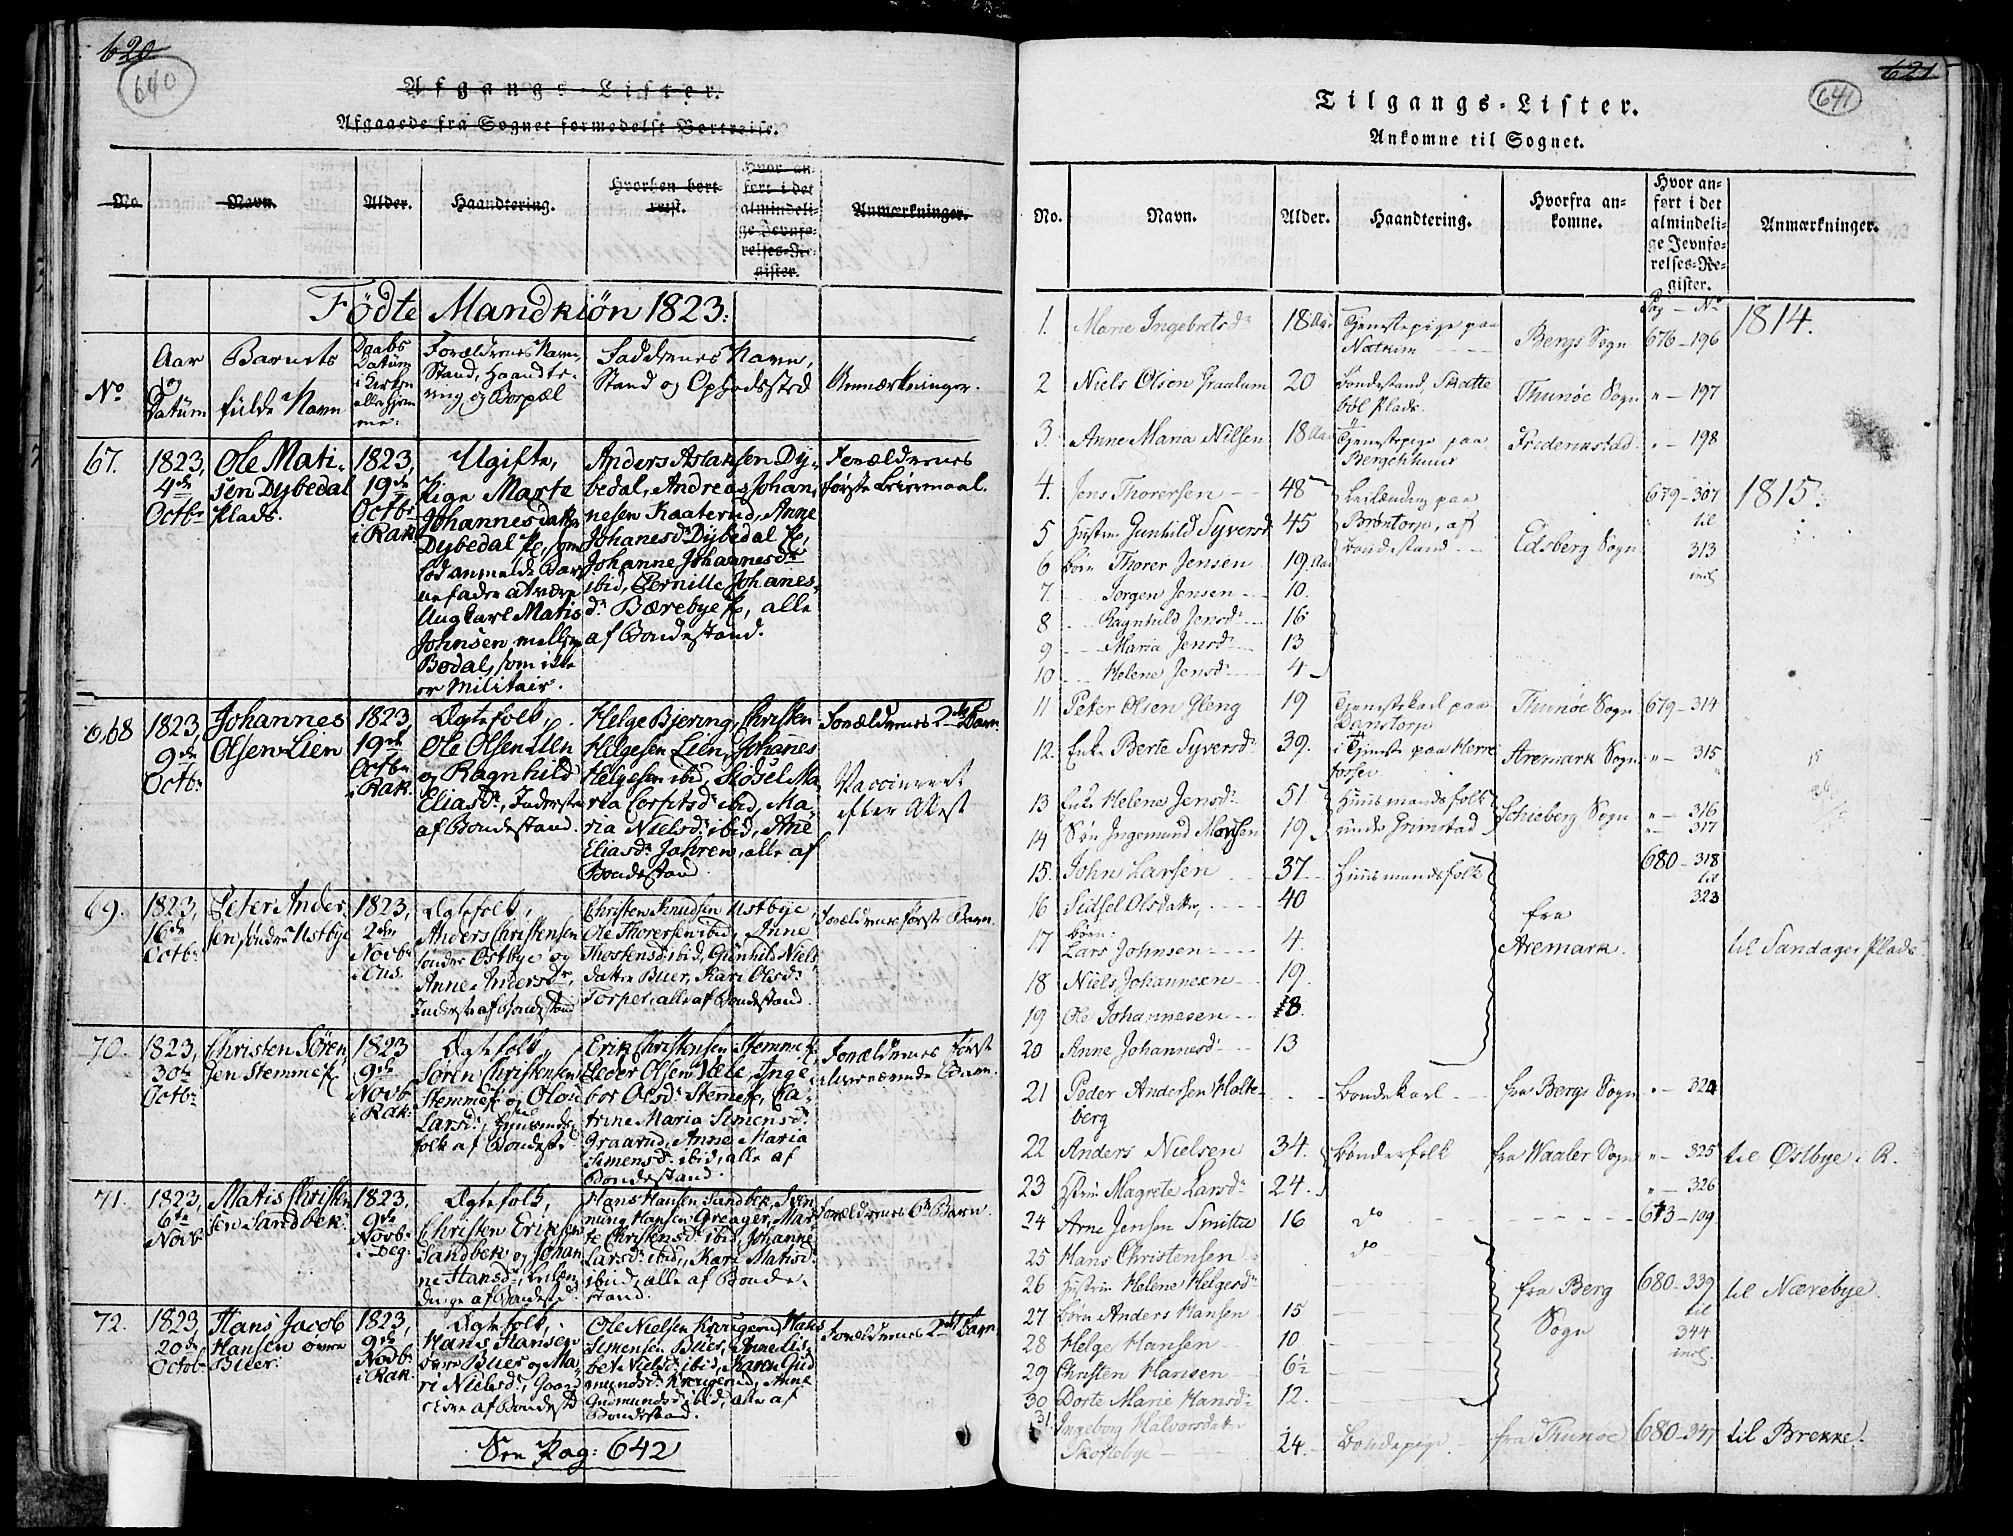 620
640
Afgangs-Lister.
Afgaaede fra Sognet formedelst Bortreise.
No.
Navn.
Alder.
Haandtering.
Hvorhen bort-
reist.
Hvor an-
ført i det
almindeli-
ge Jevnfø-
relses-Re-
gister.
Anmærkninger.
Födte Mandkiön 1823.
No
Aar
og
Datum
Barnets
fulde Navn
Daabs
Datum
i Kirken
eller hjem
me.
Forældrenes Navn,
Stand, Haandte-
ring og Bopæl
Faddernes Navn,
Stand og Opholdssted
Anmærkninger.
67.
1823,
4de
Octbr
Ole Mati-
sen Dybedal
Plads.
1823,
19de
Octbr
i Rak.
Ugifte,
Pige Marte
Johannesdatter
Dybedal Pl, som
lod anmelde Bar-
nefader at være
Ungkarl Matis
Johnsen mellem
Bødal, som ikke
er Militair.
Anders Aslaksen Dy-
bedal, Andreas Johan-
nesen Kaaterud, Anne
Johanesdr Dybedal Pl,
Johanne Johannesdr
ibid, Pernille Johanes-
dr Bærebye Pl, alle
af Bondestand.
Forældrenes
første Leiermaal.
68
1823,
9de
Octbr
Johannes
Olsen Lien
1823,
19de
Octbr
i Rak.
Ægtefolk,
Ole Olsen Lien
og Ragnhild
Eliasdr, Inderste
af Bondestand.
Helge Bjering, Christen
Helgesen Lien, Johannes
Helgesen ibid, Sidsel Ma-
ria Corfitsdr ibid, Ma-
ria Nielsdr ibid, Ane
Eliasdr Jahren, alle af
Bondestand
Forældrenes 2det Barn
Vaccineret
efter Attest
69.
1823,
16de
Octbr
Peter Ander-
sen, søndre Ustbye
1823,
2den
Novbr
i Ous.
Ægtefolk,
Anders Christensen
søndre Østbye og
Anne Andersdr,
Inderste af Bondestand
Christen Knudsen Ustbye,
Ole Thorersen ibid, Anne
Thostensdr ibid, Gunhild Niels-
datter Buer, Kari Olsdr
Torper, alle af Bondestand.
Forældrenes første Barn.
70.
1823,
30te
Octbr
Christen Sören-
sen Stemme Pl
1823
9de
Novbr
i Rak.
Ægtefolk,
Sören Christensen
Stemme Pl og Olou
Larsdr, Huusmands-
folk af Bondestd
Erik Christensen Stemme Pl
Peder Olsen Væle, Inge-
bor Olsdr Stemme Pl, Ca-
trine Maria Simensdr
Graarud, Anne Maria
Simensdr ibid, alle af
Bondestand.
Forældrenes først
Barn.
71.
1823,
6te
Novbr
Matis Christen-
sen Sandbek.
1823,
9de
Novbr
i Deg.
Ægtefolk,
Christen Eriksen
Sandbek og Johan-
ne Hansdr, Leilæn-
dinge af Bondestd.
Hans Hansen Sandbek, Sven-
nung Hansen Greager, Mar-
te Christensdr ibid, Johanne
Larsdr ibid, Kari Matisdr
ibid, alle af Bonde-
stand.
Forældrenes 6te Barn.
72.
1823
20de
Octbr
Hans Jacob
Hansen övre
Buer.
1823,
9de
Novbr
i Rak.
Ægtefolk,
Hans Hansen
övre Buer og Ma-
ri Nielsdr, Gaard-
eiere af Bondestd
Ole Nielsen Krougerud, Hans
Simensen Buer, Anne Lis-
bet Nielsdr ibid, Karen Gud-
mundsdr Krougerud, Anne
Gudmundsdr ibid, alle af
Bondestand.
Forældrenes 2det Barn
See Pag: 642
621
641
Tilgangs-Lister.
Ankomne til Sognet.
No.
Navn.
Alder.
Haandtering.
Hvorfra an-
komne.
Hvor an-
ført i det
almindeli-
ge Jevnfø-
relses-Re-
gister.
Anmærkninger.
Pag - No
1. Marie Ingebretsdr 18 Aar Tjenestepige paa
Natkim Bergs Sogn 676 - 196 1814.
2 Niels Olsen Graalum 20 Bondestand, Skatte
böl Plads. Thunöe Sogn " - 197
3. Anne Maria Nilsen 18 Aar Tjenestepige paa
Bergekhuus Friderikstad " - 198
4. Jens Thorersen 48 Leilænding paa 679 - 307 1815.
5 Hustru Gunhild Syversdr 45 Brøntorp, af til
6 børn Thorer Jensen 19 Aar bondestand Edsberg Sogn 313
7. Jorgen Jensen 10. incl.
8 Ragnhild Jensdr 16
9 Maria Jensdr 13
10 Helene Jensdr 4
11 Peter Olsen Gleng 19 Tjenestekarl paa
Thunöe Sogn 679 - 314
12. Enke Berte Syversdr 39. i Tjeneste paa Herre
fosser Aremark Sogn " - 315
13 Enke Helene Jensdr 51 Huusmandsfolk
14 Søn Ingemund Morsen 19 under Grimstad Schieberg Sogn " - 316
" - 317
15. John Larsen 37 Huusmandsfolk 680 - 318
til
16 Sidsel Olsdatter, 40 fra 323
børn:
17 Lars Johnsen 4. Aremark. til Sandager Plads
18 Niels Johannesen 19.
19 Ole Johannesen 18.
20 Anne Johannesdr 13
21 Peder Andersen Holte-
berg Bondekarl fra Bergs Sogn " - 324
22 Anders Nielsen 34. Bønderfolk fra Waaler Sogn " - 325 til Østbye i R.
23 Hustru Magrete Larsdr 24. " - 326
24 Arne Jensen Smitta 16 do 673 - 109
25 Hans Christensen do
26 Hustru Helene Helgesdr fra Berg 680 - 339 til Nærebye.
27 børn Anders Hansen 15 til
28 Helge Hansen 10 Sogn 344
29 Christen Hansen 6½ incl.
30 Dorte Marie Hansdr 12.
31 Ingeborg Halvorsdatter
Skoflebye 24 Bondepige fra Thunöe 680 - 347 til Brekke.